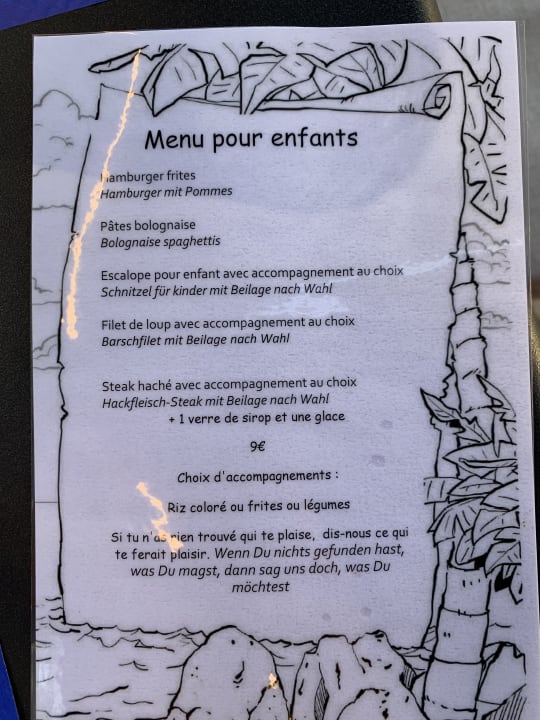 Menu pour enfants
Hamburger frites
Hamburger mit Pommes
Pâtes bolognaise
Bolognaise spaghettis
Escalope pour enfant avec accompagnement au choix
Schnitzel für kinder mit Beilage nach Wahl
Filet de loup avec accompagnement au choix
Barschfilet mit Beilage nach Wahl
Steak haché avec accompagnement au choix
Hackfleisch-Steak mit Beilage nach Wahl
+ 1 verre de sirop et une glace
9€
Choix d'accompagnements :
Riz coloré ou frites ou légumes
Si tu n'as rien trouvé qui te plaise, dis-nous ce qui
te ferait plaisir. Wenn Du nichts gefunden hast,
was Du magst, dann sag uns doch, was Du
möchtest